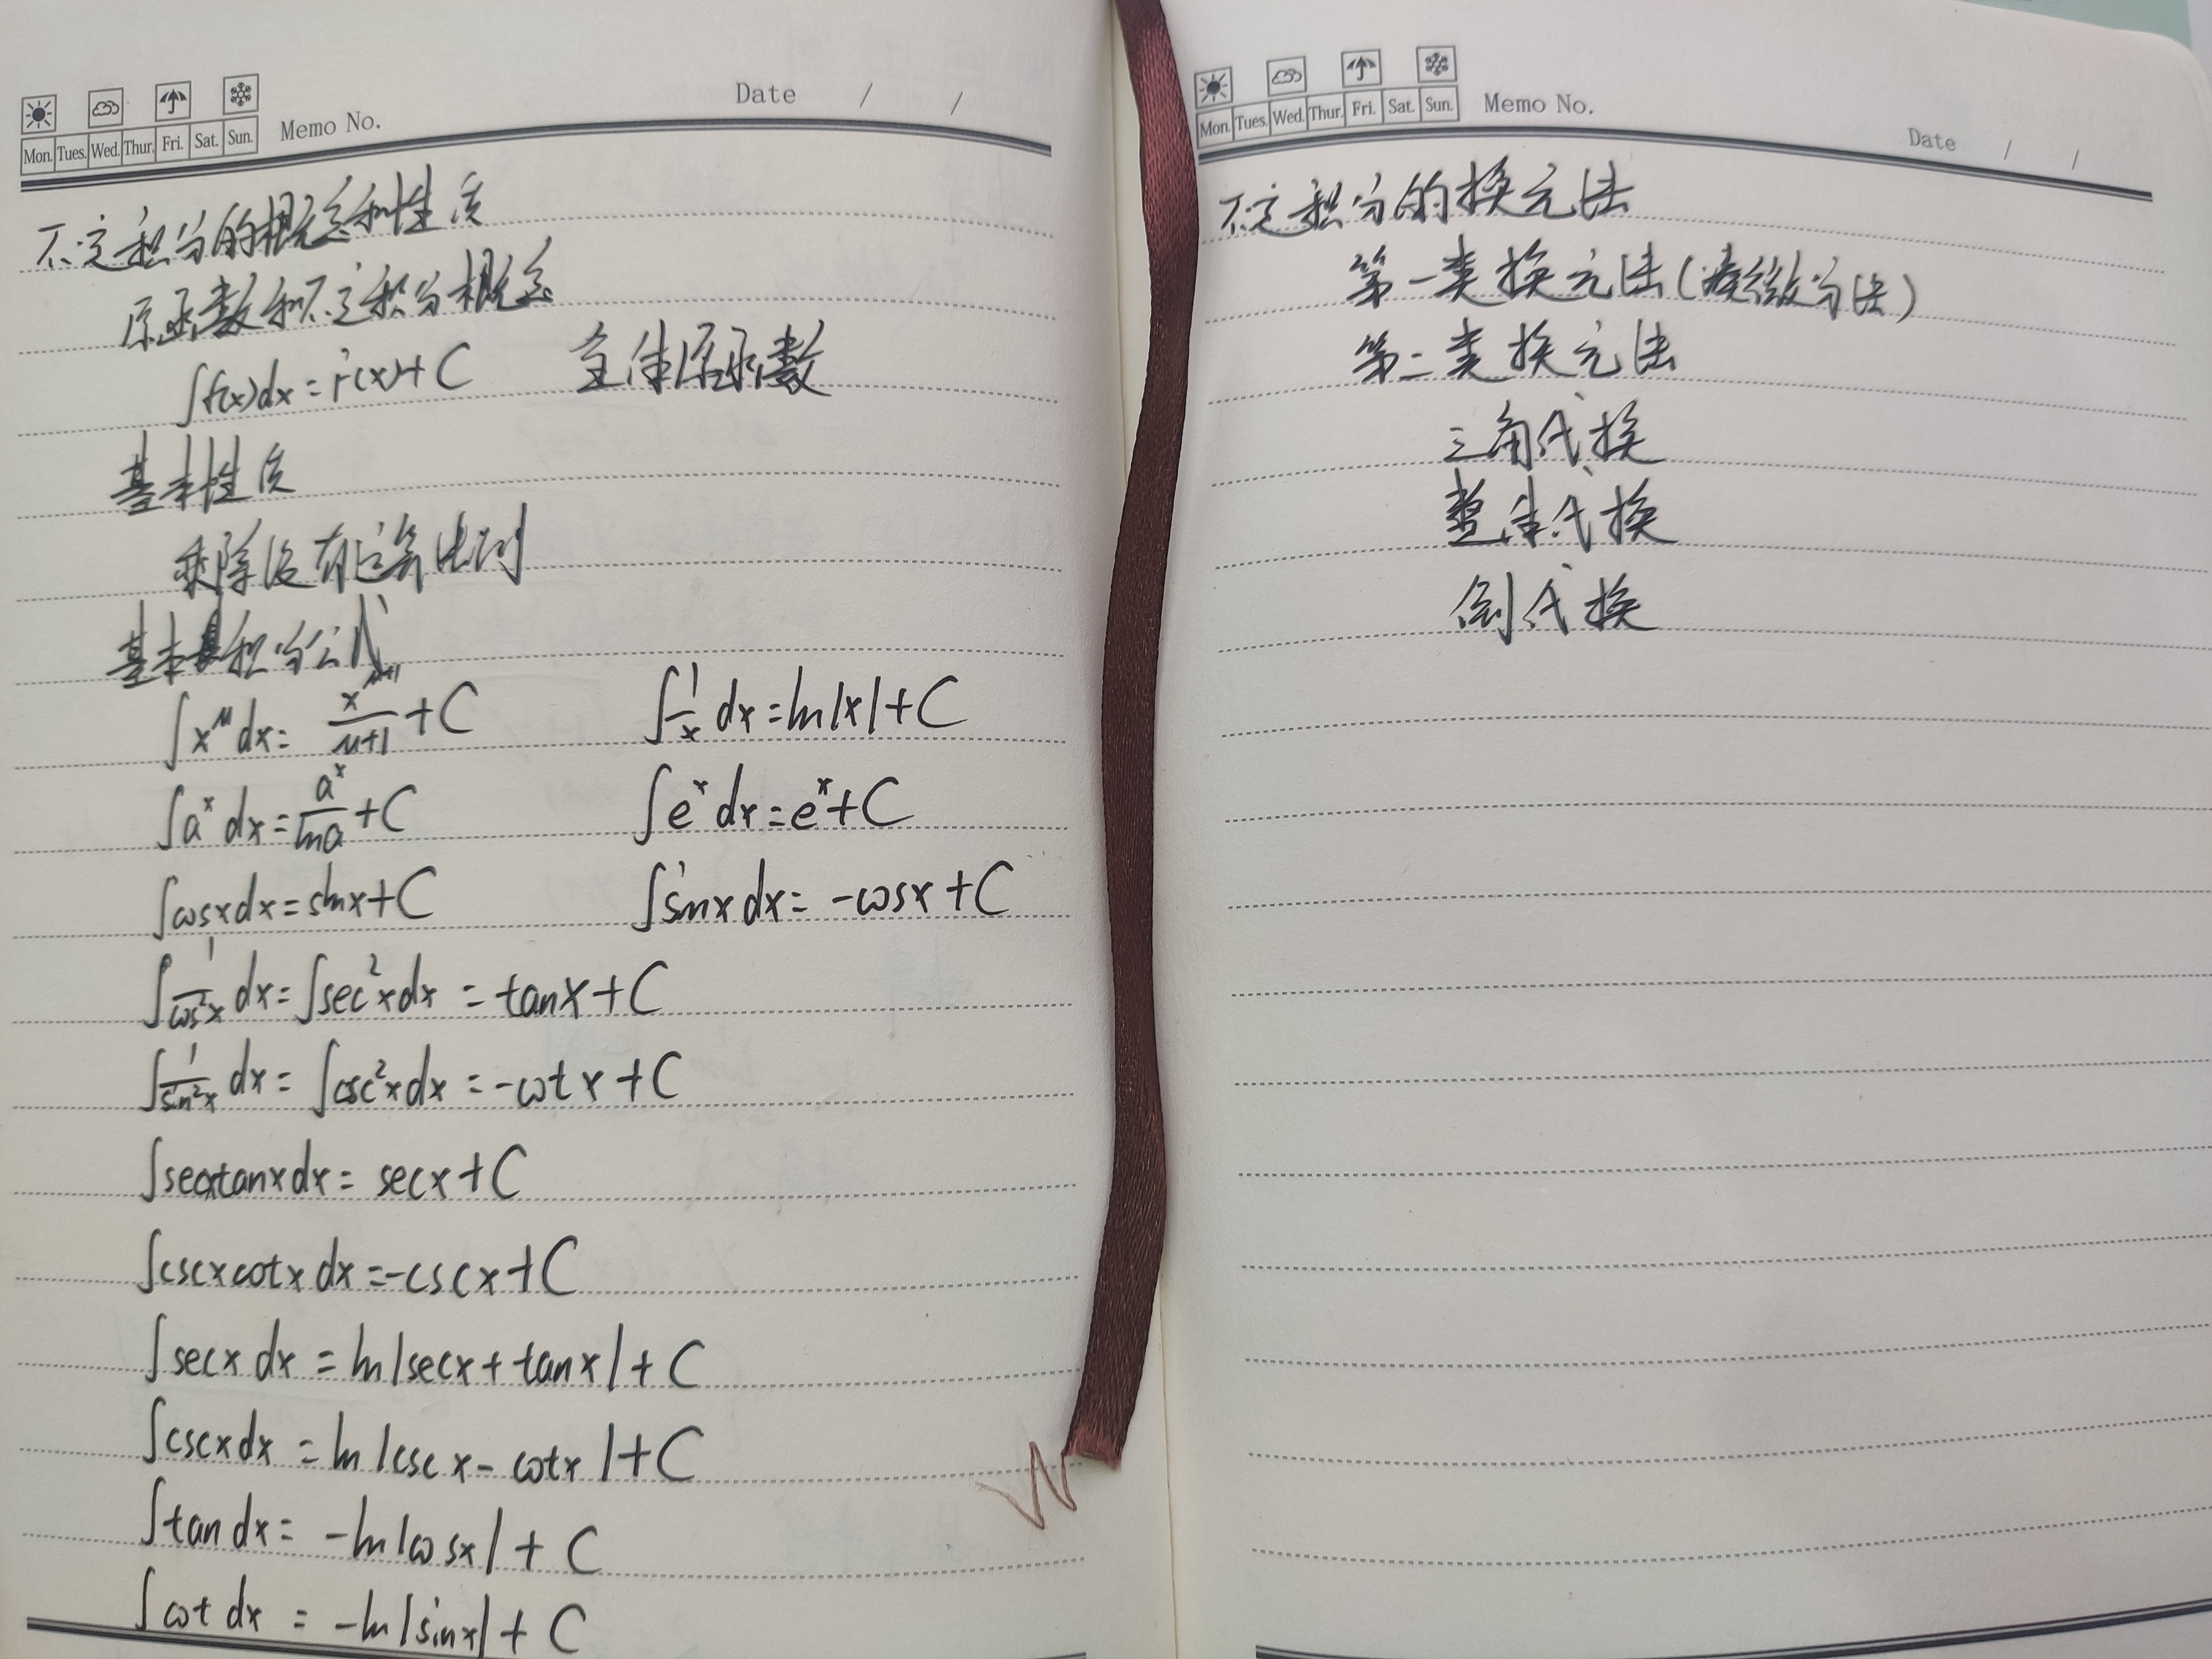 Memo No. Date / /
Mon. Tues. Wed. Thur. Fri. Sat. Sun.
不定积分的概念和性质
原函数和不定积分概念
∫f(x)dx = F(x)+C 在求原函数
基本性质
乘除没有运算法则
基本积分公式
∫x^μ dx = x^(μ+1)/(μ+1) + C ∫1/x dx = ln|x|+C
∫a^x dx = a^x/lna + C ∫e^x dx = e^x+C
∫cosxdx = sinx+C ∫sinxdx = -cosx+C
∫1/cos²x dx = ∫sec²xdx = tanx+C
∫1/sin²x dx = ∫csc²xdx = -cotx+C
∫secxtanxdx = secx+C
∫cscxcotxdx = -cscx+C
∫secxdx = ln|secx+tanx|+C
∫cscxdx = ln|cscx-cotx|+C
∫tandx = -ln|cosx|+C
∫cotdx = -ln|sinx|+C
Memo No. Date / /
Mon. Tues. Wed. Thur. Fri. Sat. Sun.
不定积分的换元法
第一类换元法(凑微分法)
第二类换元法
三角代换
整体代换
倒代换